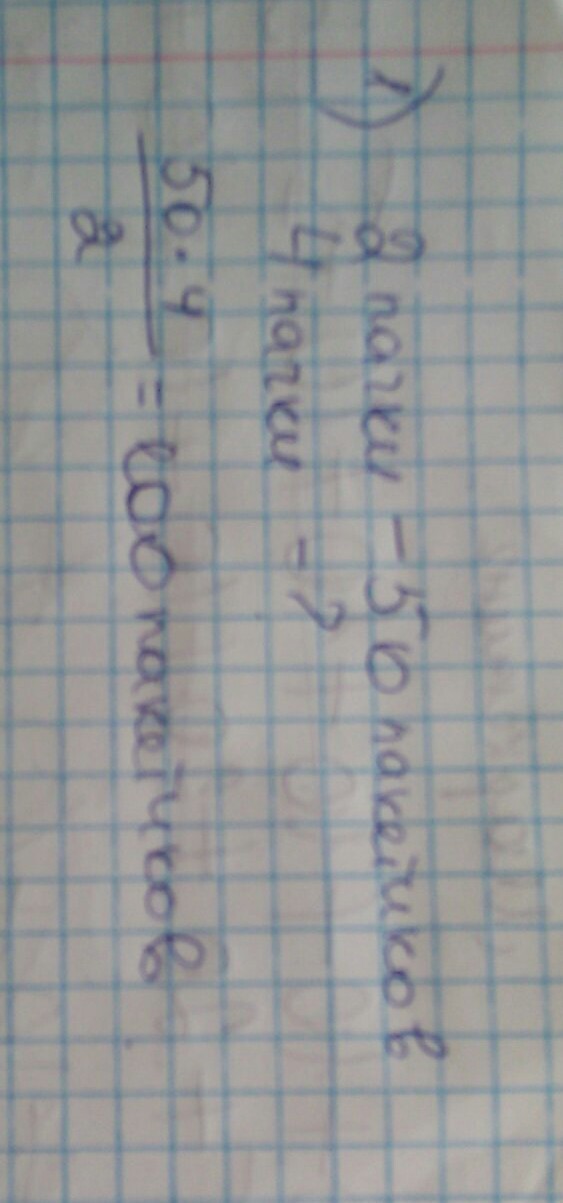 1) 2 пачки - 50 пакетиков
4 пачки - ?
50 · 4
2
= 100 пакетиков